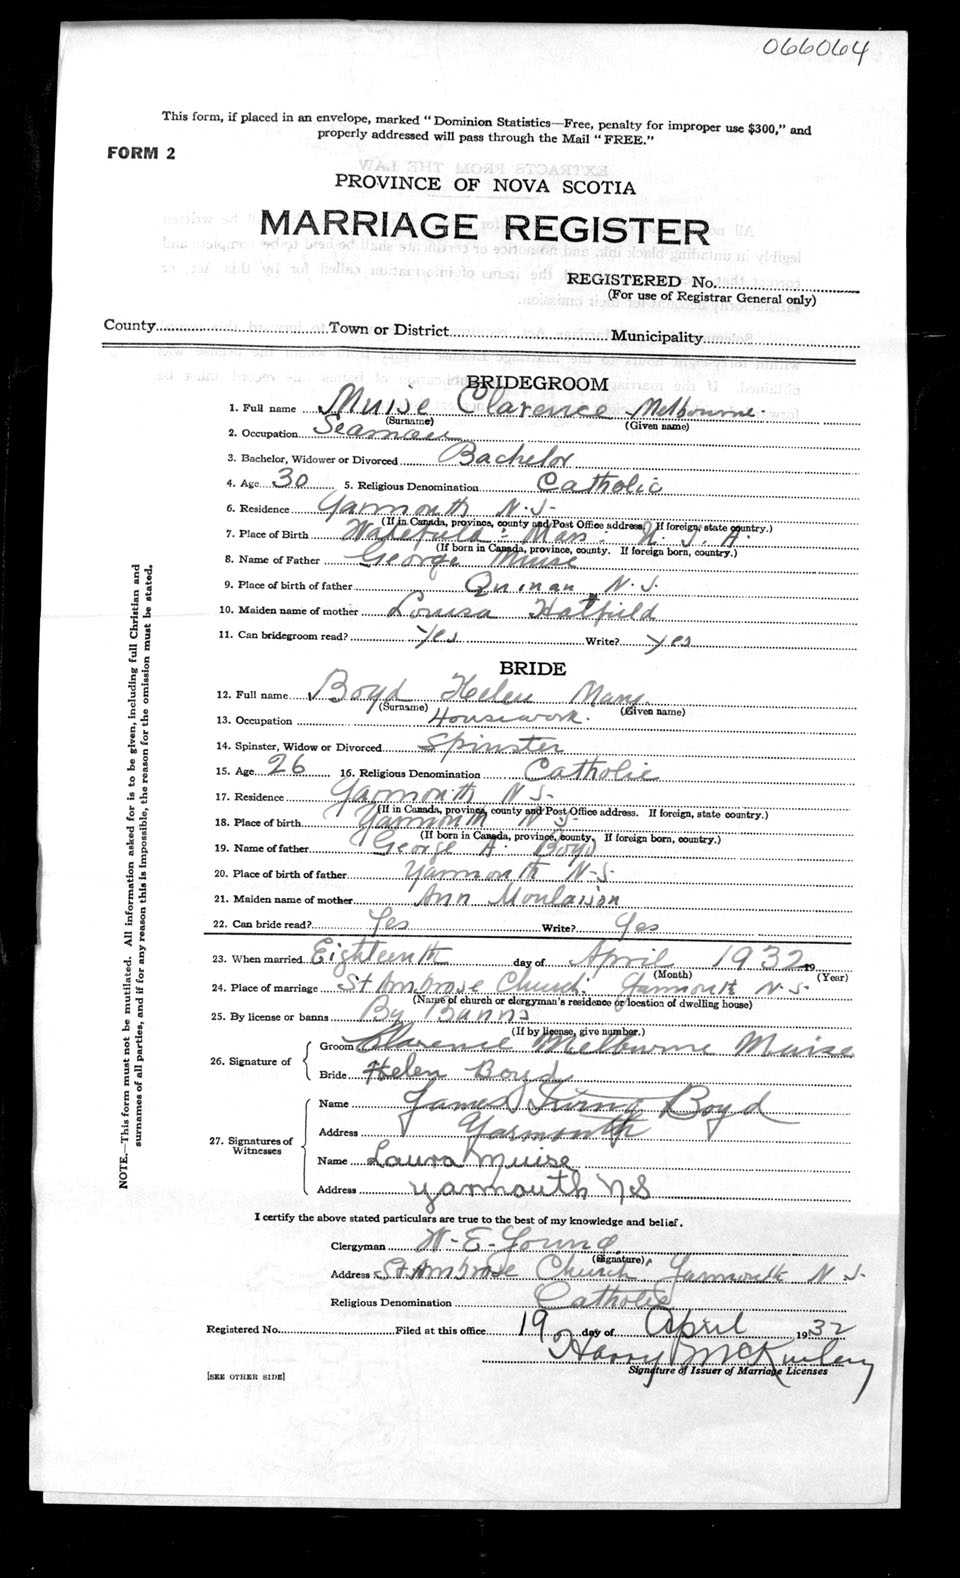 066064
This form, if placed in an envelope, marked "Dominion Statistics—Free, penalty for improper use $300," and
properly addressed will pass through the Mail "FREE."
FORM 2
PROVINCE OF NOVA SCOTIA
MARRIAGE REGISTER
REGISTERED No.
(For use of Registrar General only)
County Town or District Municipality
BRIDEGROOM
1. Full name Muise Clarence Melbourne.
(Surname) (Given name)
2. Occupation Seaman
3. Bachelor, Widower or Divorced Bachelor
4. Age 30 5. Religious Denomination Catholic
6. Residence Yarmouth N.S.
(If in Canada, province, county and Post Office address. If foreign, state country.)
7. Place of Birth Wakefield - Mass: U.S.A.
(If born in Canada, province, county. If foreign born, country.)
8. Name of Father George Muise
9. Place of birth of father Quinan N.S.
10. Maiden name of mother Louisa Hatfield
11. Can bridegroom read? Yes Write? yes
BRIDE
12. Full name Boyd Helen Mary.
(Surname) (Given name)
13. Occupation Housework.
14. Spinster, Widow or Divorced Spinster
15. Age 26 16. Religious Denomination Catholic
17. Residence Yarmouth N.S.
(If in Canada, province, county and Post Office address. If foreign, state country.)
18. Place of birth Yarmouth N.S.
(If born in Canada, province, county. If foreign born, country.)
19. Name of father George A. Boyd
20. Place of birth of father Yarmouth N.S.
21. Maiden name of mother Ann Moulaison
22. Can bride read? Yes Write? Yes
23. When married Eighteenth day of April 1932 19
(Month) (Year)
24. Place of marriage St Ambrose Church: Yarmouth N.S.
(Name of church or clergyman's residence or location of dwelling house)
25. By license or banns By Banns
(If by license, give number.)
26. Signature of
Groom Clarence Melburne Muise
Bride Helen Boyd
27. Signatures of
Witnesses
Name James Irving Boyd
Address Yarmouth
Name Laura Muise
Address yarmouth NS
I certify the above stated particulars are true to the best of my knowledge and belief.
Clergyman W-E-Young
(Signature)
Address St Ambrose Church Yarmouth N.S.
Religious Denomination Catholic
Registered No. Filed at this office 19 day of April 1932
Harry McKinley
Signature of Issuer of Marriage Licenses
[SEE OTHER SIDE]
NOTE.—This form must not be mutilated. All information asked for is to be given, including full Christian and
surnames of all parties, and if for any reason this is impossible, the reason for the omission must be stated.